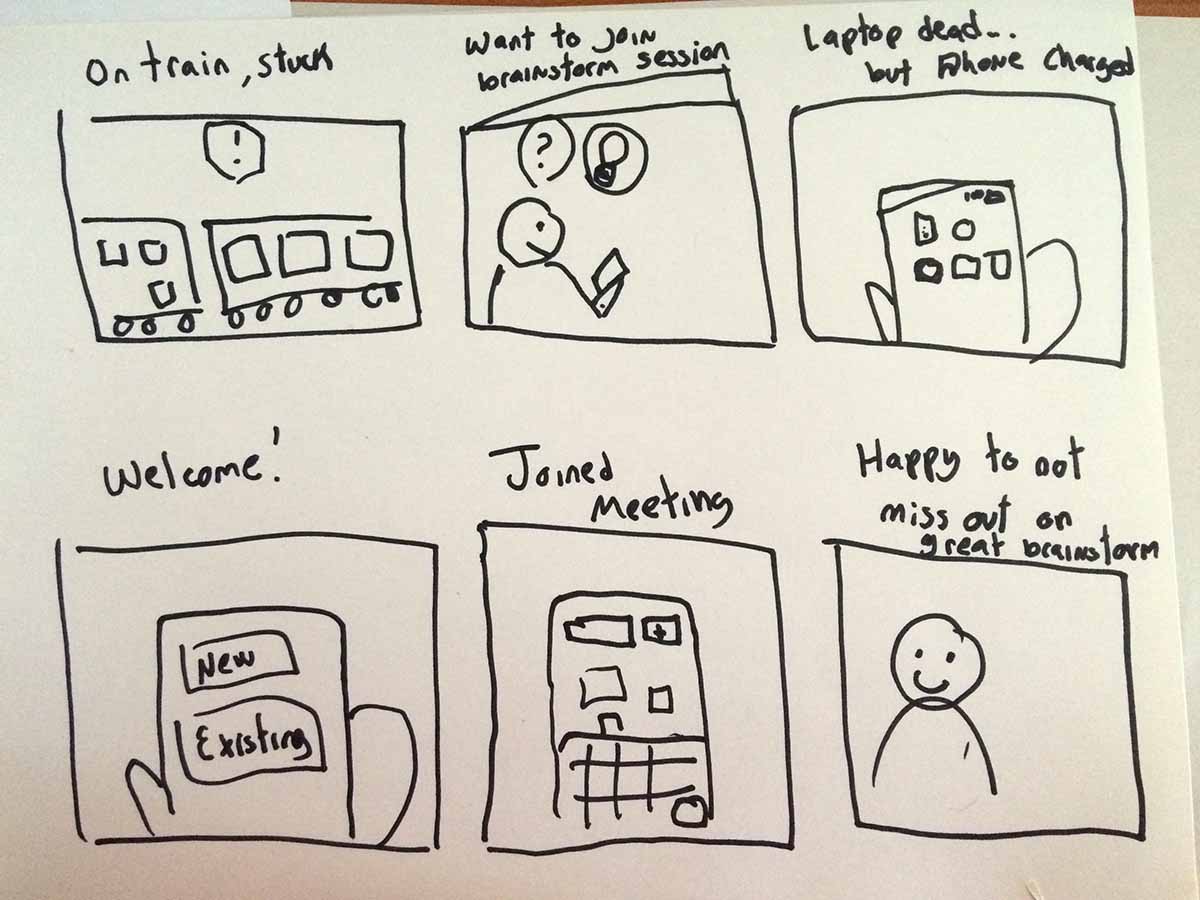 On train, stuck
Want to join
brainstorm session
Laptop dead...
but Phone Charged
!
?
Welcome!
Joined
Meeting
Happy to not
miss out on
great brainstorm
New
Existing
+